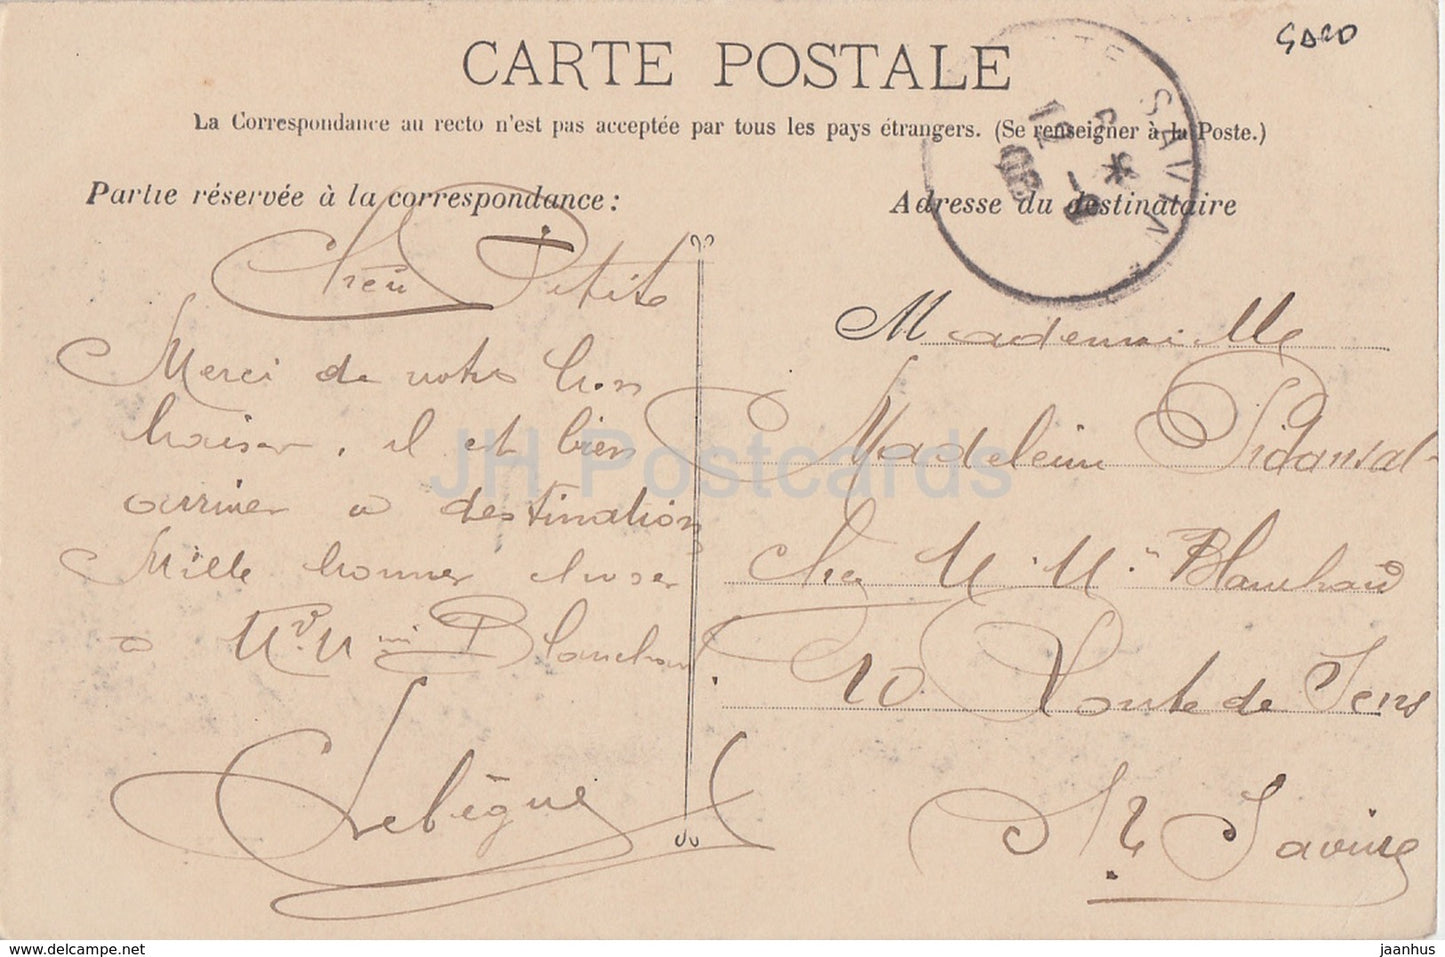 CARTE POSTALE
La Correspondance au recto n'est pas acceptée par tous les pays étrangers. (Se renseigner à la Poste.)
Partie réservée à la correspondance:
Adresse du destinataire
Petite
Merci de votre bon
baiser, il est bien
arriver a destination
Mille bonnes choses
a Mr. M Blanchard
Lebègue
Mademoiselle
Madeleine Pidansat
Chez M. M. Blanchard
20 Route de Sens
Ste Savine
JH Postcards
www.delcampe.net
jaanhus